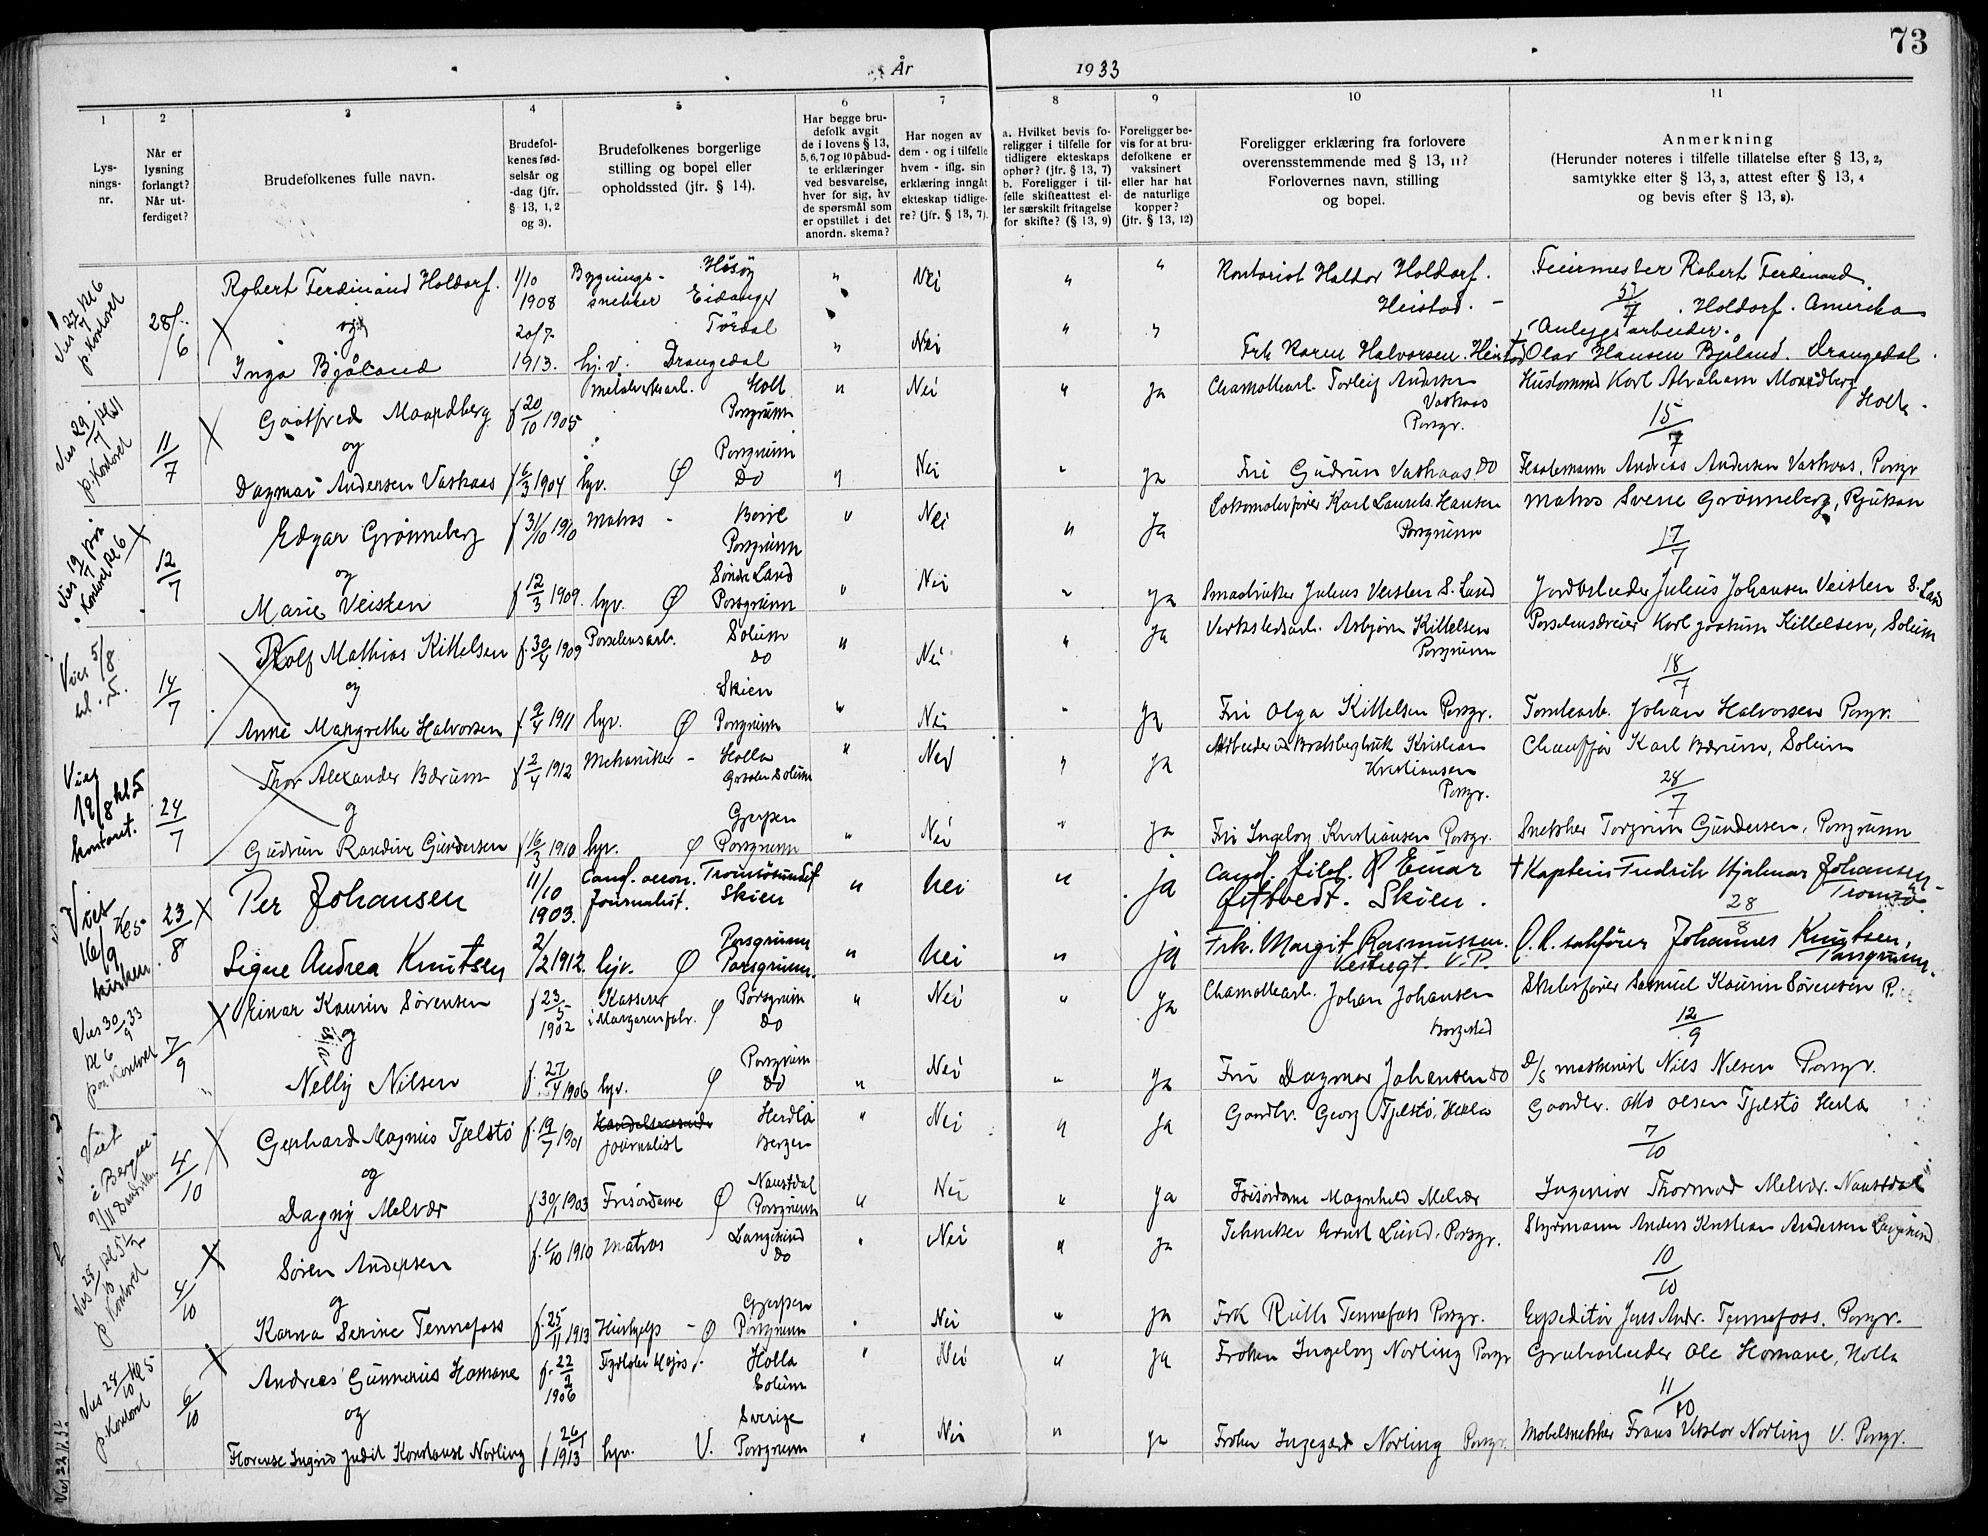 73
År 1933
1 2 3 4 5 6 7 8 9 10 11
Lys-
nings-
nr.
Når er
lysning
forlangt?
Når ut-
ferdiget?
Brudefolkenes fulle navn.
Brudefol-
kenes fød-
selsår og
-dag (jfr.
§ 13, 1, 2
og 3).
Brudefolkenes borgerlige
stilling og bopel eller
opholdssted (jfr. § 14).
Har begge bru-
defolk avgit
de i lovens § 13,
5, 6, 7 og 10 påbud-
te erklæringer
ved besvarelse,
hver for sig, av
de spørsmål som
er opstillet i det
anordn. skema?
Har nogen av
dem - og i tilfelle
hvem - iflg. sin
erklæring inngåt
ekteskap tidlige-
re? (jfr. § 13, 7).
a. Hvilket bevis fo-
religger i tilfelle for
tidligere ekteskaps
ophør? (jfr. § 13, 7)
b. Foreligger i til-
felle skifteattest el-
ler særskilt fritagelse
for skifte? (§ 13, 9)
Foreligger be-
vis for at bru-
defolkene er
vaksinert
eller har hat
de naturlige
kopper?
(jfr. § 13, 12)
Foreligger erklæring fra forlovere
overensstemmende med § 13, 11?
Forlovernes navn, stilling
og bopel.
Anmerkning
(Herunder noteres i tilfelle tillatelse efter § 13, 2,
samtykke efter § 13, 3, attest efter § 13, 4
og bevis efter § 13, 8).
Vies 27/7 kl 6
p. kontoret
28/6
Robert Ferdinand Holdorf. 1/10 1908 Bygnings-snekker Hisøy Eidanger " Nei " " Kontorist Haldor Holdorf. Heistad. - Feiermester Robert Ferdinand Holdorf. Amerika
og
5/7
Inga Bjåland 20/7 1913. hj. v. Tördal Drangedal " Nei " " Frk Karen Halvorsen. Heistad Anleggsarbeider. Olav Hansen Bjåland. Drangedal.
Vies 29/7 kl 11
p. kontoret
11/7
Gotfred Maardberg f 20/10 1905 Metalverksarb. Holt Porsgrunn " Nei " Ja Chamottearb. Torleif Andersen Vashaas Porsgr. Husbmand Karl Abraham Maardberg Holt.
og
15/7
Dagmar Andersen Vashaas f 6/3 1904 hjv. Ø Porsgrunn Do " Nei " ja Fri Gudrun Vashaas Do Andreas Andersen Vashaas, Porsgr
Vies 19/7 paa
kontoret kl 6
12/7
Edgar Grönneberg f 31/10 1910 Matros - Borre Porsgrunn " Nei " Ja Lokomotivfører Karl Laurits Hansen Porsgrunn Matros Svene Grönneberg, Rjukan
og
17/7
Marie Veisten f 12/3 1909. hjv. Ø Söndre Land Porsgrunn " Nei " ja Smaabruker Julius Veisten S. Land Jordbruker Julius Johansen Veisten S. Land
Vies 5/8
14/7
Rolf Mathias Kittelsen f. 30/4 1909 Porselensarb. Solum Do " Nei " ja Verkstedsarb. Asbjørn Kittelsen Porsgrunn Porselensdreier Karl Joakim Kittelsen, Solum
og
18/7
Anne Margrethe Halvorsen f 9/4 1911 hjv. Ø Skien Porsgrunn " Nei " ja Fri Olga Kittelsen Porsgr. Tomtearb. Johan Halvorsen Porsgr.
Vies
19/8 kl 5
kontoret.
24/7
Thor Alexander Bærum f 2/4 1912 Mekaniker - Holla Solum " Nei " ja Arbeider v. Bratsbergbruk Kristian Kristiansen Porsgr. Chauffør Karl Bærum, Solum
og
28/7
Gudrun Randine Gundersen f 16/3 1910 hjv. Ø Gjerpen Porsgrunn " Nei " ja Fri Ingeborg Kristiansen Porsgr. Snekker Torgrim Gundersen, Porsgrunn
Vies
16/9 kl 5
kirken.
23/8
Per Johansen 11/10 1903. Cand. oecon. Journalist. Tromsösundet Skien " Nei " ja Cand. filol. Einar Østvedt. Skien. † Kaptein Fredrik Hjalmar Johansen Tromsö.
28/8
Signe Andrea Knutsen 2/2 1912. hjv. Ø Porsgrunn Porsgrunn. " Nei " ja Frk. Margit Rasmussen. Vestregt. V.P. O.R. sakfører Johannes Knutsen, Porsgrunn.
Vies 30/9 33
kl 6
paa kontoret
7/9
Einar Kaurin Sörensen f 23/5 1902 Kasserer i Margarinfabr. Ø Porsgrunn Do " Nei " ja Chamottearb. Johan Johansen Borgestad Skibsfører Samuel Kaurin Sørensen P.
og
12/9
Nelly Nilsen f. 27/4 1906 hjv. Ø Porsgrunn Do " Nei " ja Fri Dagmar Johansen Do D/S maskinist Nils Nilsen Porsgr.
Viet
i Bergen
9/11
4/10
Gerhard Magnus Tjelstö f. 19/7 1901 Journalist Herdla Bergen " Nei " Ja Gaardbr. Georg Tjelstö, Herdla Gaardbr. Otto Olsen Tjelstö Herdla
og
7/10
Dagny Melvær f 30/1 1903 Frisördame Ø Naustdal Porsgrunn " Nei " ja Frisördame Magnhild Melvær Ingeniør Thormod Melvær. Naustdal
Vies 28/10 kl 5½
p. kontoret
4/10
Sören Andersen f. /10 1910 Matros Langesund Do " Nei " ja Tekniker Ernst Lund. Porsgr. Styrmann Anders Kristian Andersen Langesund
og
10/10
Karna Serine Tennefoss f. 25/11 1913 Hushjelp - Ø Gjerpen Porsgrunn " Nei " ja Frk Ruth Tennefoss Porsgr. Expeditør Jens Andr. Tennefoss. Porsgr.
Vies 28/10 kl 5
p. kontoret
6/10
Andreas Gunnerius Homane f. 22/2 1906 Holla Solum " Nei " ja Frøken Ingeborg Norling Porsgr Grubearbeider Ole Homane, Holla
og
11/10
Florense Ingrid Judit Konstanse Norling f 26/1 1913 hjv. V. Sverige Porsgrunn " Nei " ja Frøken Ingegerd Norling Porsgr. Møbelsnekker Frans Viktor Norling V. Porsgr.